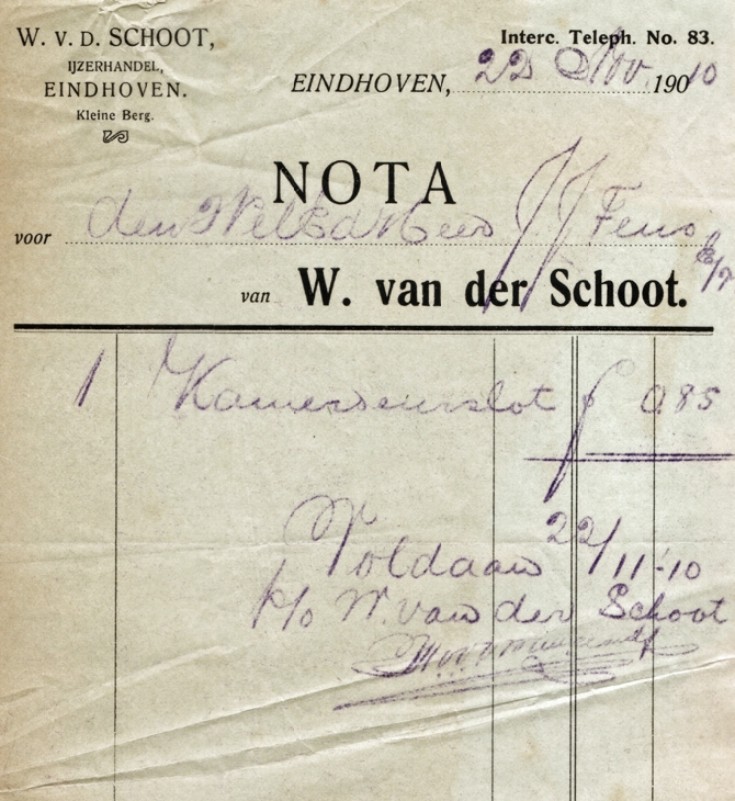 W. v. d. SCHOOT,
IJZERHANDEL,
EINDHOVEN.
Kleine Berg.
Interc. Teleph. No. 83.
EINDHOVEN, 22 Nov. 19010
NOTA
voor den WelEd Heer J J Fens
van W. van der Schoot.
1 Kamerdeurslot f 0.85
Voldaan 22/11-'10
p/o W. van der Schoot